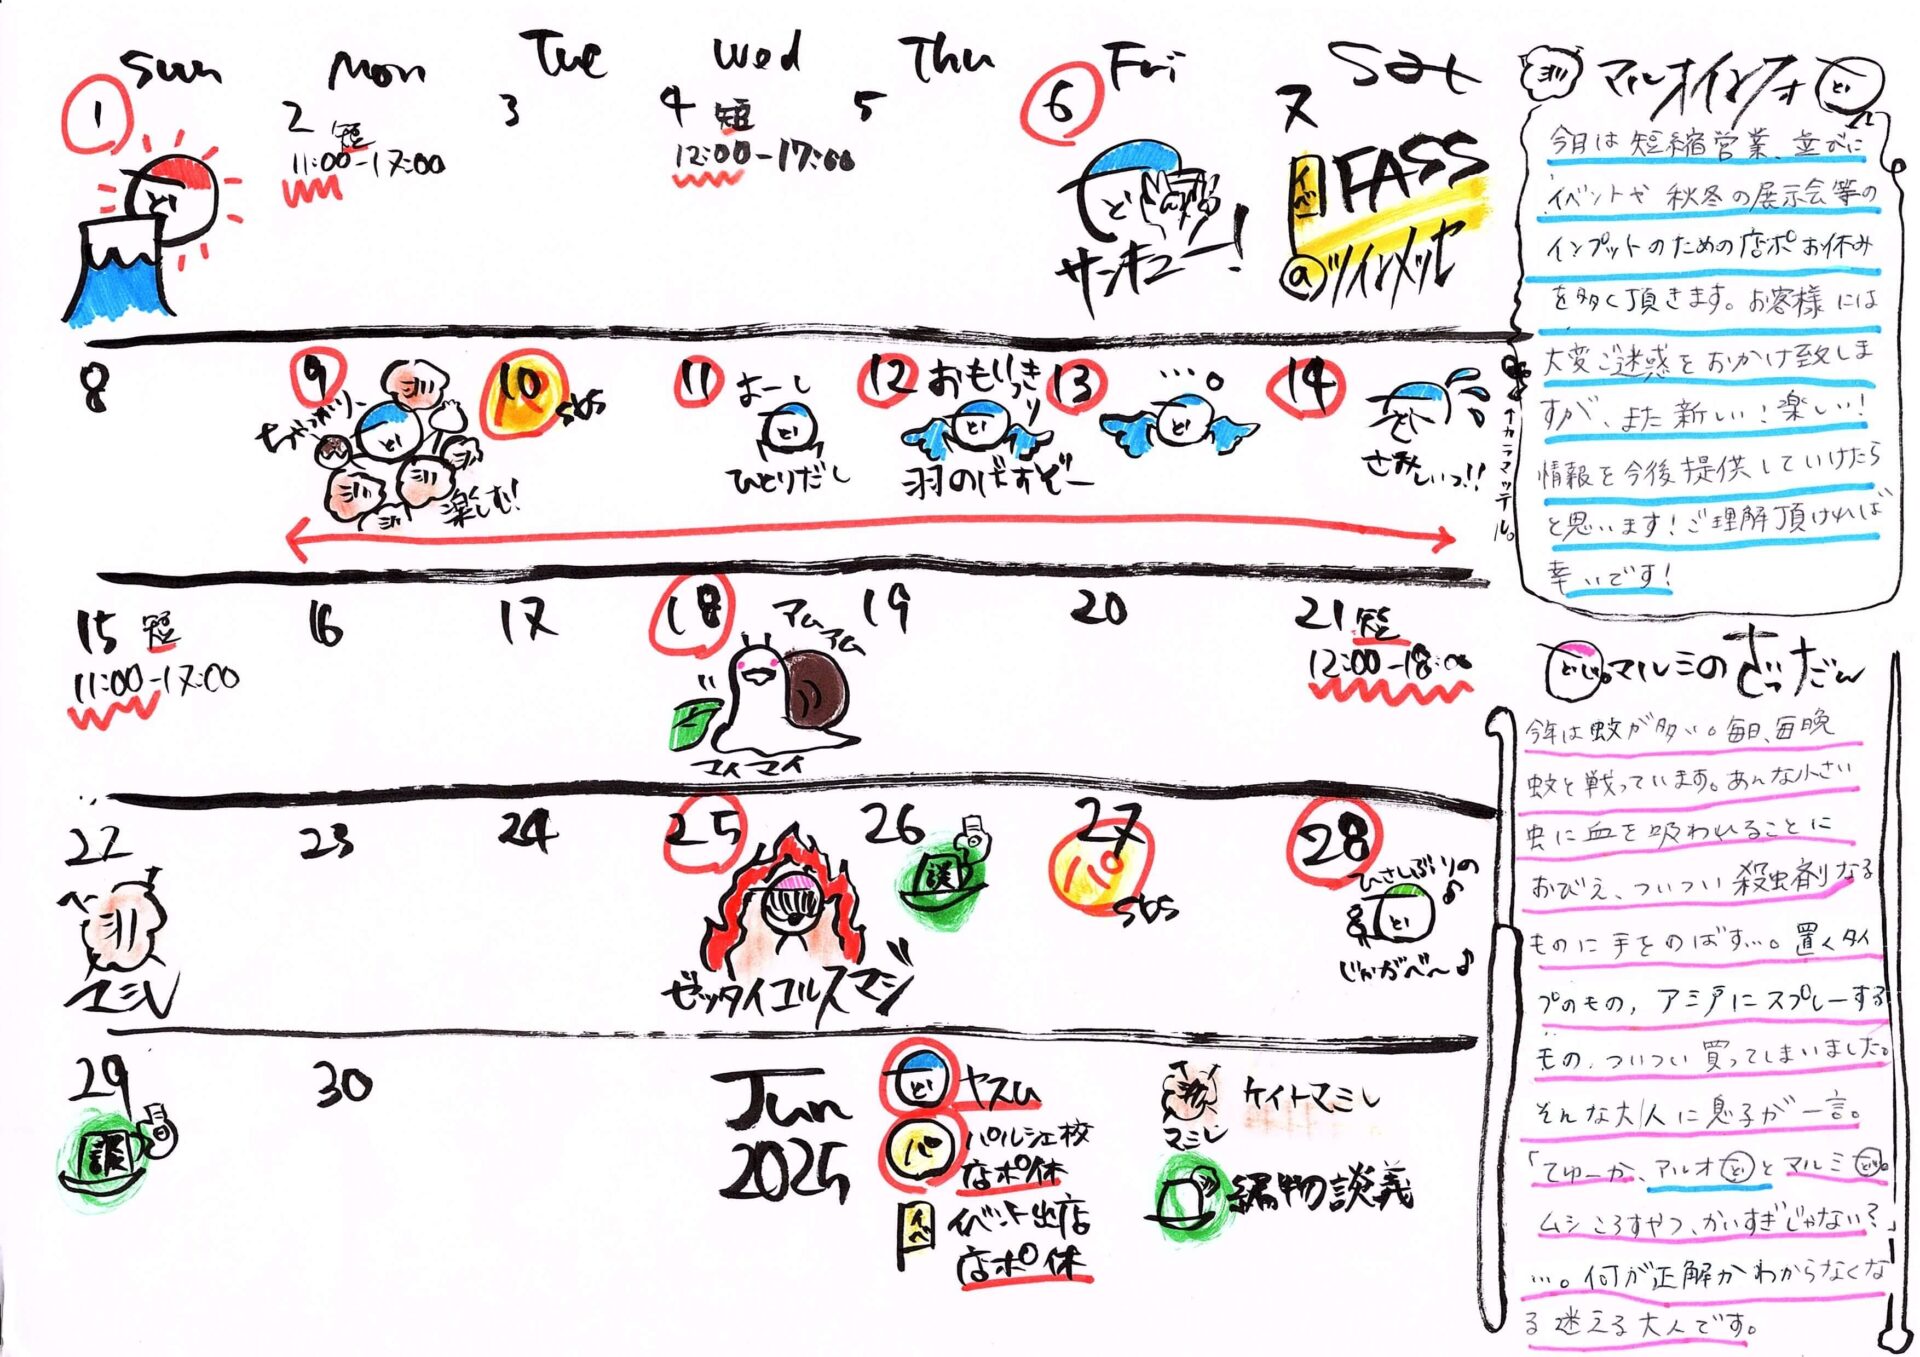 Sun Mon Tue Wed Thu Fri Sat
1
2 短
11:00-17:00
3
4 短
12:00-17:00
5
6
サンキュー!
7
イベ FASS
@ツインメッセ
8
9
楽しむ!
10
SBS
11 よーし
ど
ひとりだし
12 おもいっきり
ど
羽のばすぞー
13 …。
ど
14
さみしいっ!!
15 短
11:00-17:00
16
17
18
アムアム
マイマイ
19
20
21 短
12:00-18:00
22
マミレ
23
24
25
ゼッタイコルスマジ
26
談
27
パ
SBS
28
ひさしぶりの♪
ど
じゃがべ〜♪
29
談
30
Jun
2025
ど ヤスム
パ パルシェ校
店ポ休
イベ イベント出店
店ポ休
マミレ ケイトマミレ
編物談義
マルオインフォ ど
今月は短縮営業、並びに
イベントや秋冬の展示会等の
インプットのための店ポお休み
を多く頂きます。お客様には
大変ご迷惑をおかけ致しま
すが、また新しい!楽しい!
情報を今後提供していけたら
と思います!ご理解頂ければ
幸いです!
マルミのざつだん
今年は蚊が多い。毎日、毎晩
蚊と戦っています。あんな小さい
虫に血を吸われることに
おびえ、ついつい殺虫剤なる
ものに手をのばす…。置くタイ
プのもの、アミ戸にスプレーする
もの、ついつい買ってしまいました。
そんな大人に息子が一言。
「てゆーか、マルオどとマルミ
ムシころすやつ、かいすぎじゃない?」
…。何が正解かわからなくな
る迷える大人です。